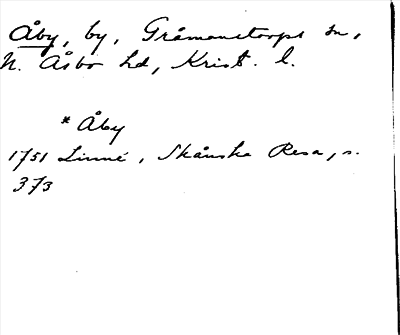 Åby, by, Gråmanstorps sn,
N. Åsbo hd, Krist. l.
* Åby
1751 Linné, Skånska Resa, s.
373